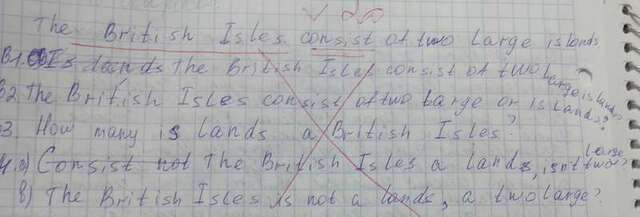 The British Isles consist of two large islonds
B1. Is the British Isles consist of two large islands
B2. The British Isles consist of two large or islands?
3. How many is lands a British Isles?
4. a) Consist not The British Isles a lands, isnt large two?
b) The British Isles is not a lands, a two large?